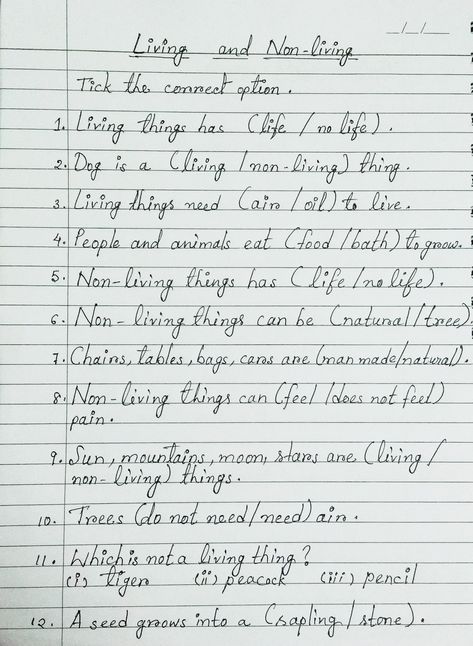 _/_/__
Living and Non-living
Tick the correct option.
1. Living things has (life / no life).
2. Dog is a (living / non-living) thing.
3. Living things need (air / oil) to live.
4. People and animals eat (food / bath) to grow.
5. Non-living things has (life / no life).
6. Non-living things can be (natural / tree).
7. Chairs, tables, bags, cars are (man made / natural).
8. Non-living things can (feel / does not feel)
pain.
9. Sun, mountains, moon, stars are (living /
non-living) things.
10. Trees (do not need / need) air.
11. Which is not a living thing?
(i) tiger (ii) peacock (iii) pencil
12. A seed grows into a (sapling / stone).